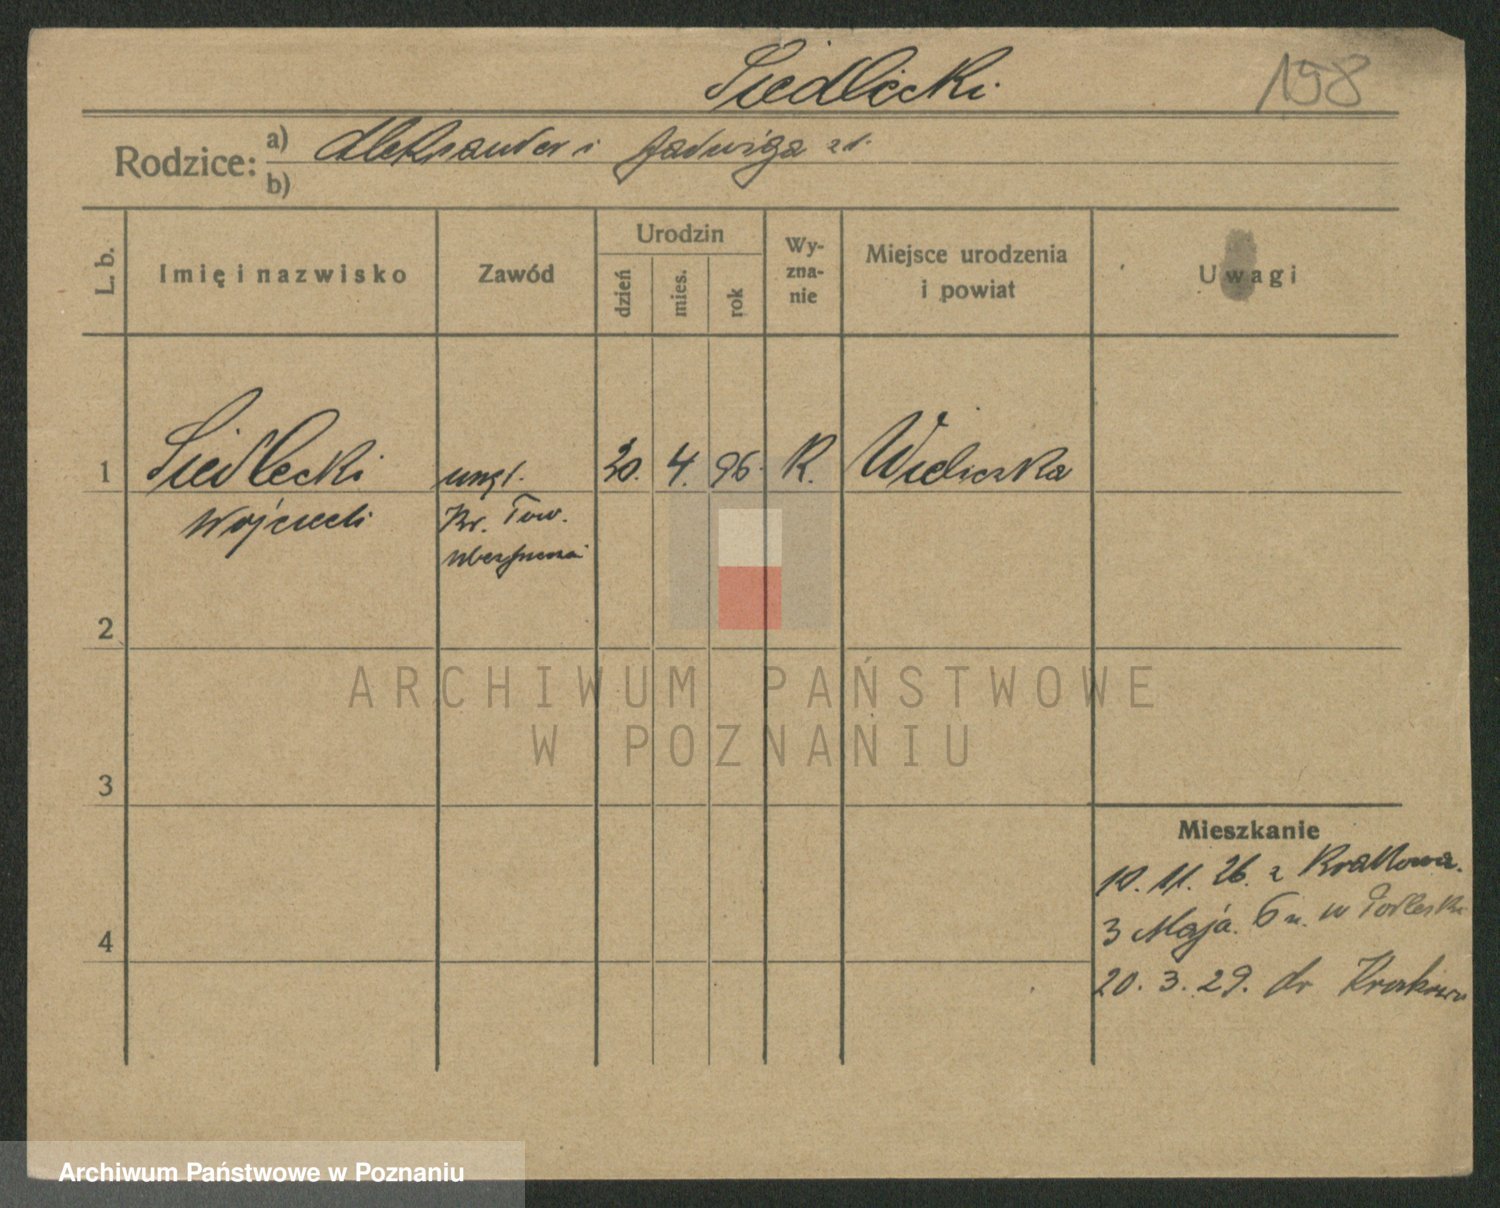 Siedlecki
198
Rodzice: a) Aleksander i Jadwiga zd.
b)
L. b.
Imię i nazwisko
Zawód
Urodzin
dzień
mies.
rok
Wy-
zna-
nie
Miejsce urodzenia
i powiat
Uwagi
1 Siedlecki urzęd. 20. 4. 96. R. Wieliczka
Wojciech Kr. Tow.
2
3
4
Mieszkanie
10. 11. 26. z Krakowa.
3 Maja. 6 u. w
20. 3. 29. do Krakowa
ARCHIWUM PAŃSTWOWE
W POZNANIU
Archiwum Państwowe w Poznaniu